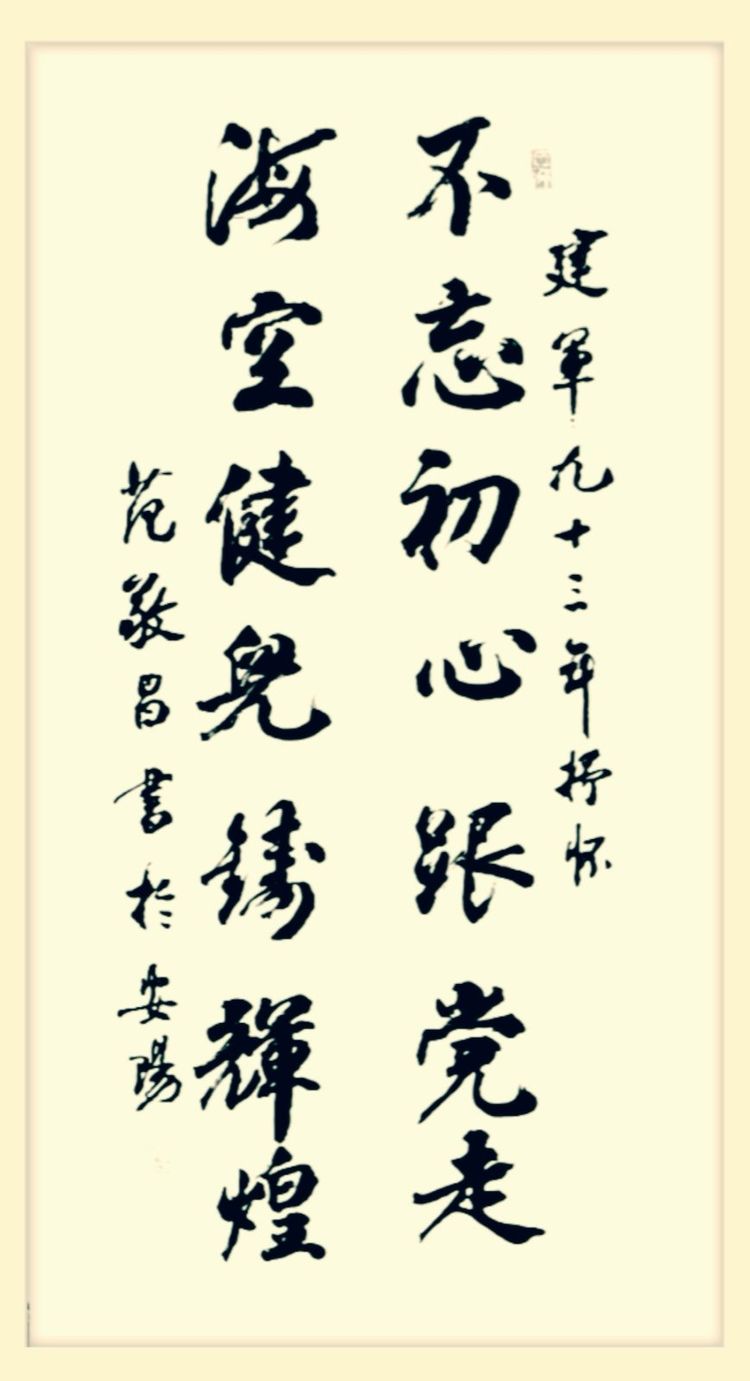 建軍九十三年抒怀
不忘初心跟党走
海空健兒鋳輝煌
范敬昌書於安陽